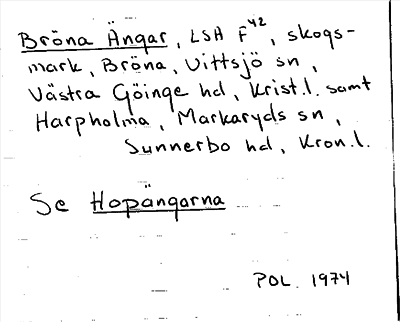 Bröna Ängar, LSA F⁴², skogs-
mark, Bröna, Vittsjö sn,
Västra Göinge hd, Krist.l. samt
Harpholma, Markaryds sn,
Sunnerbo hd, Kron.l.
Se Hopängarna
POL. 1974